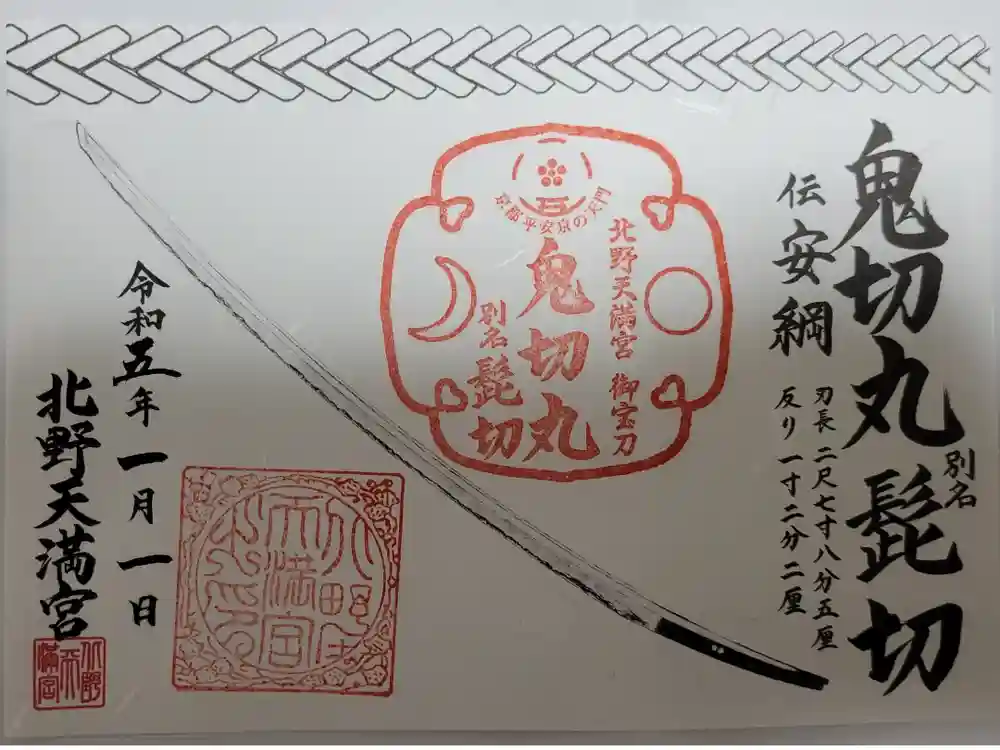 鬼切丸 別名 髭切
伝 安綱
刃長 二尺七寸八分五厘
反り 一寸二分二厘
京都平安京の天門
北野天満宮 御宝刀
鬼切丸
別名 髭切
令和五年 一月 一日
北野天満宮
北野天満宮